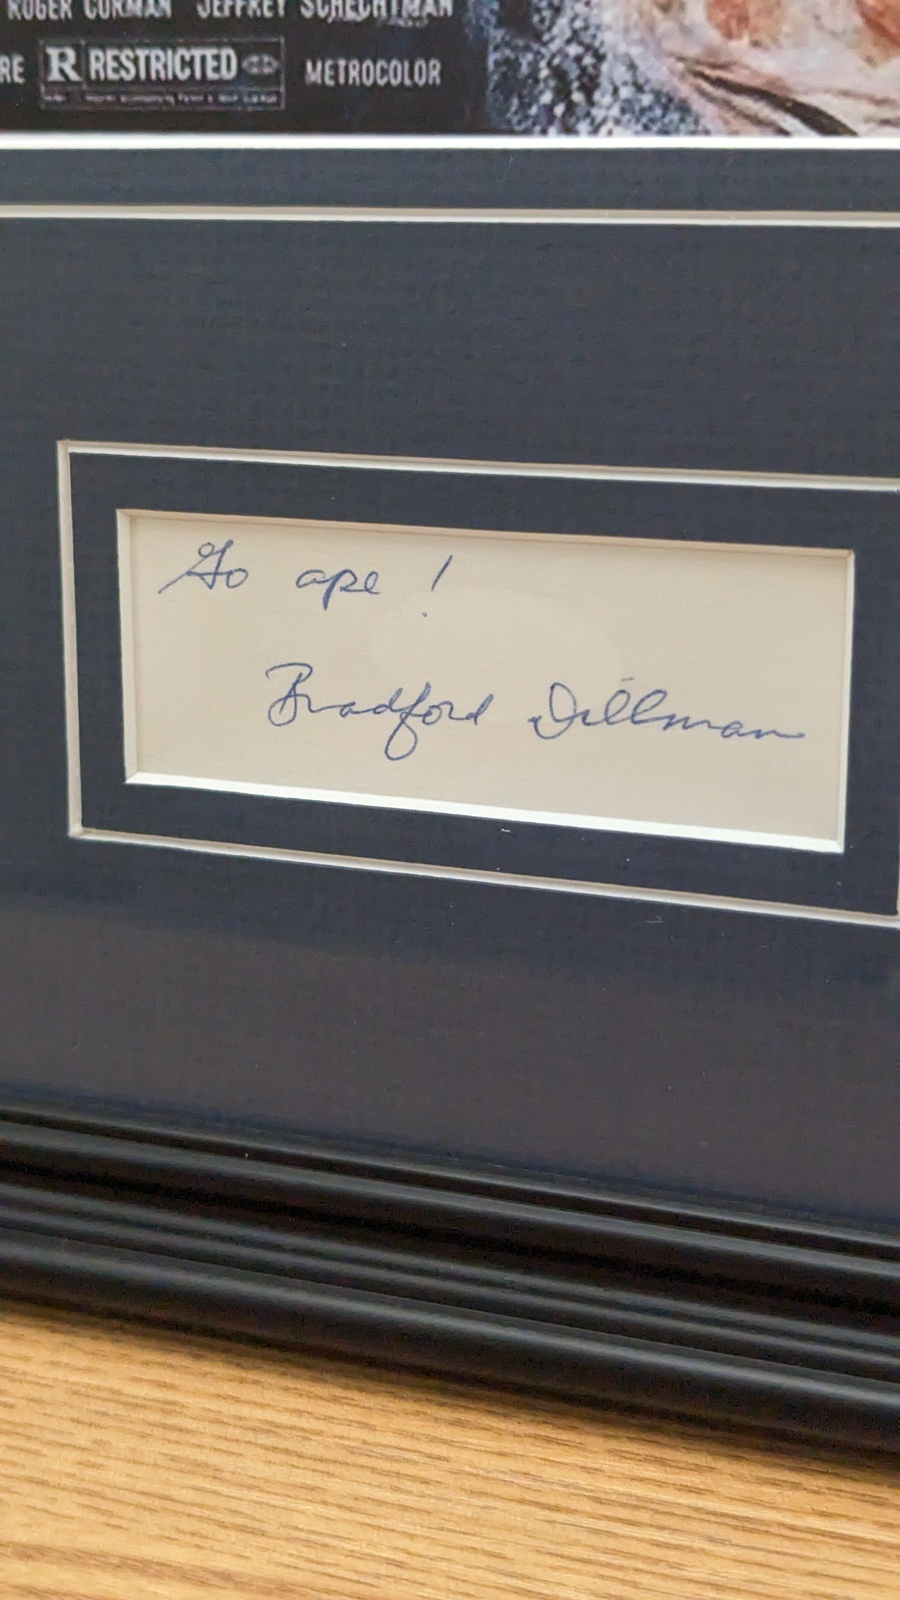 ROGER CORMAN JEFFREY SCHECHTMAN
RE R RESTRICTED METROCOLOR
Go ape !
Bradford Dillman